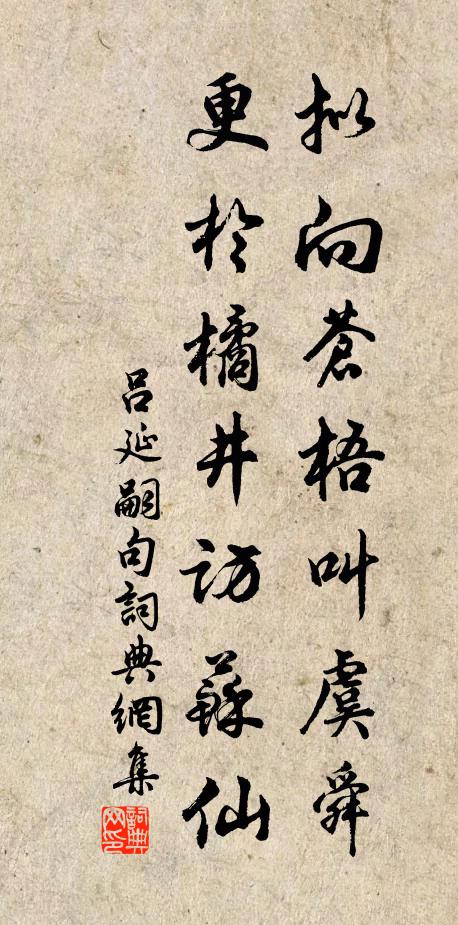 拟向蒼梧叫虞舜
更於橘井訪蘇仙
吕延嗣句詞典網集
詞典网印